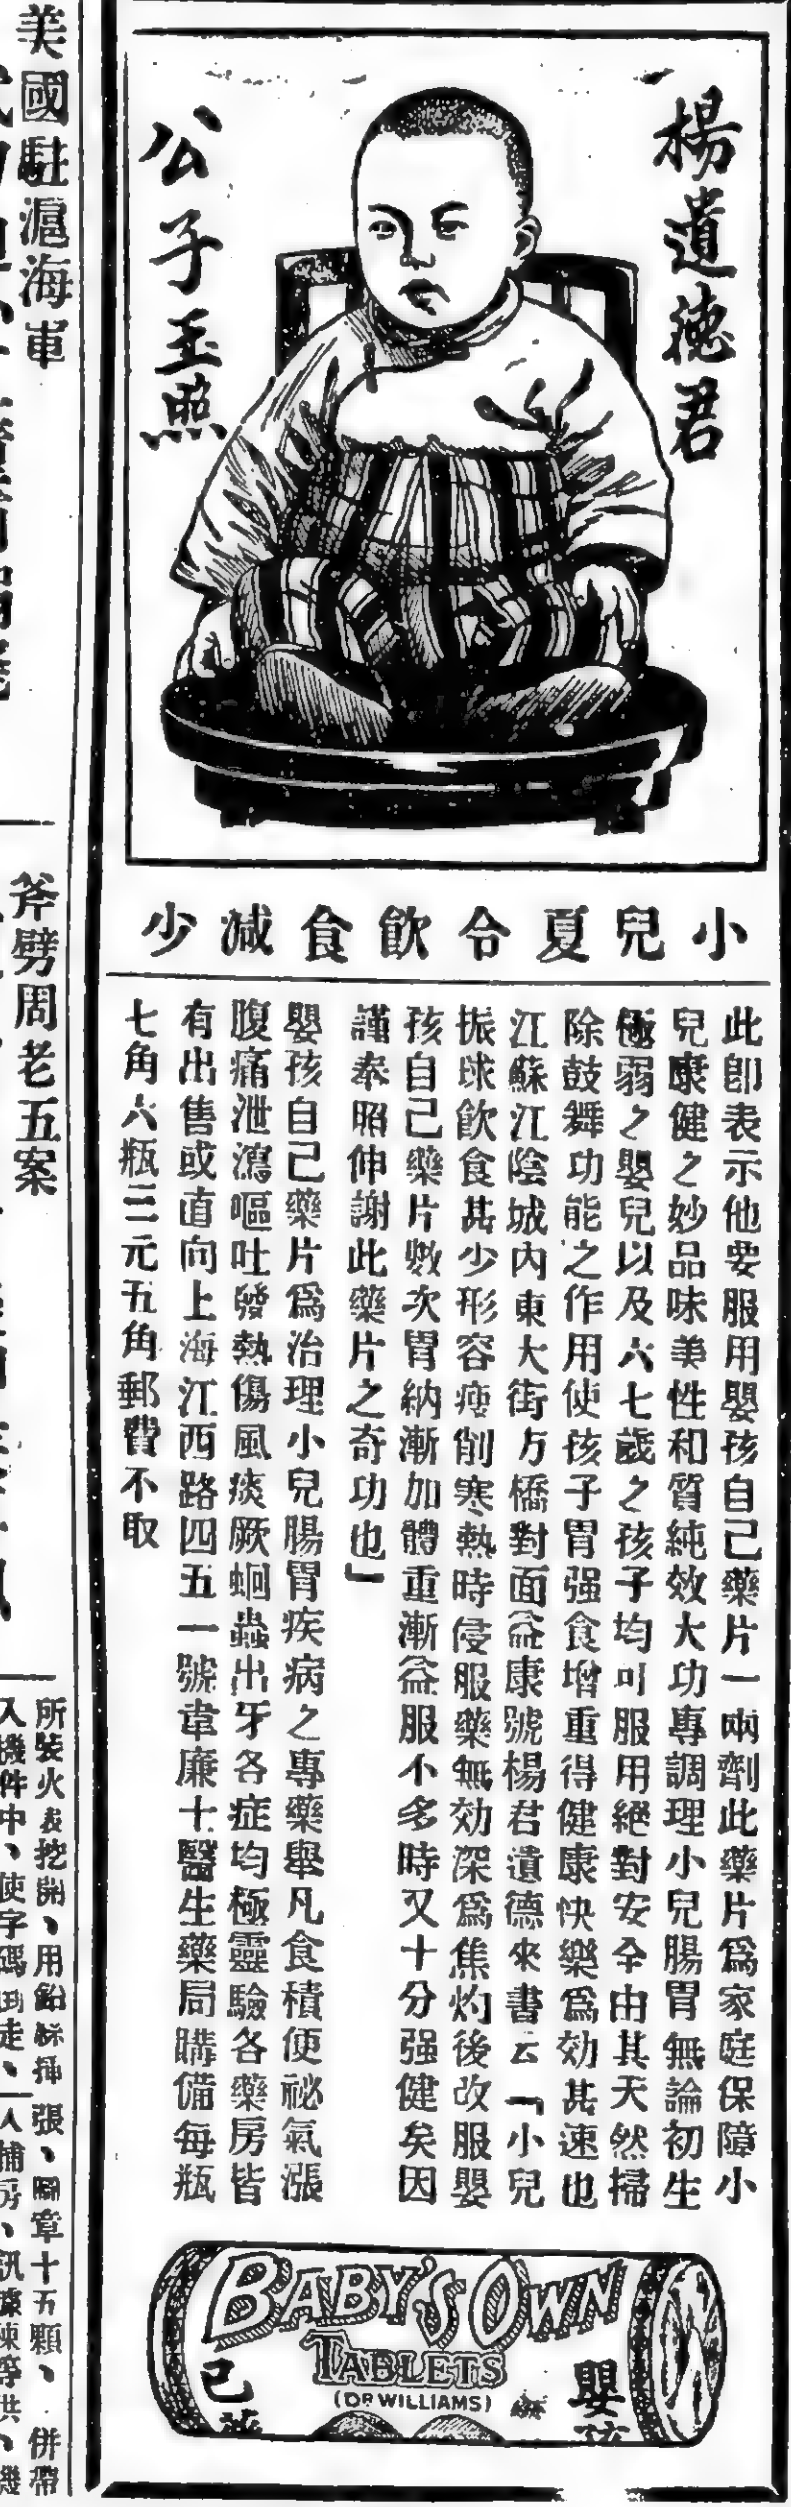 楊遺德君
公子玉照
小兒夏令飲食減少
此卽表示他要服用嬰孩自己藥片一兩劑此藥片爲家庭保障小
兒康健之妙品味美性和質純效大功專調理小兒腸胃無論初生
極弱之嬰兒以及六七歲之孩子均可服用絕對安全由其天然掃
除鼓舞功能之作用使孩子胃强食增重得健康快樂爲効甚速也
江蘇江陰城內東大街方橋對面益康號楊君遺德來書云「小兒
振球飲食甚少形容瘦削寒熱時侵服藥無効深爲焦灼後改服嬰
孩自己藥片數次胃納漸加體重漸益服不多時又十分强健矣因
謹奉照伸謝此藥片之奇功也」
嬰孩自己藥片爲治理小兒腸胃疾病之專藥舉凡食積便祕氣漲
腹痛泄瀉嘔吐發熱傷風痰厥蛔蟲出牙各症均極靈驗各藥房皆
有出售或直向上海江西路四五一號韋廉士醫生藥局購備每瓶
七角六瓶三元五角郵費不取
BABY'S OWN
TABLETS
(DR WILLIAMS)
嬰孩
己藥
美國駐滬海軍
斧劈周老五案
所裝火表挖開、用鉛絲插
入機件中、使字碼倒走、
張、圖章十五顆、併帶